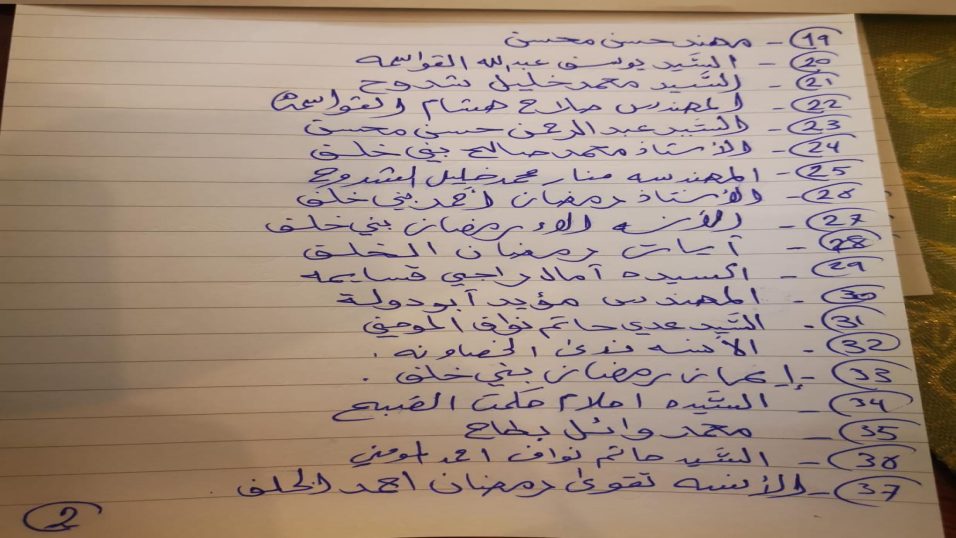 19 - مهند حسن محسن
20 - السَّيد يوسف عبدالله القواسمه
21 - السَّيد محمد خليل شدوح
22 - المهندس صلاح هشام القواسمة
23 - السَّيد عبد الرحمن حسني محسن
24 - الأستاذ محمد صالح بني خلف
25 - المهندسه منار محمد خليل الشدوح
26 - الأستاذ رمضان أحمد بني خلف
27 - الأنسه الاء رمضان بني خلف
28 - آيات رمضان الخلف
29 - السيده آمال راجي قسايمه
30 - المهندس مؤيد أبو دولة
31 - السَّيد عدي حاتم نواف المومني
32 - الآنسه ندى الخصاونه .
33 - إيمان رمضان بني خلف .
34 - السَّيده احلام حكمت الضبع
35 - محمد وائل بطاح
36 - السَّيد حاتم نواف احمد المومني
37 - الأنسه تقوى رمضان احمد الخلف .
2